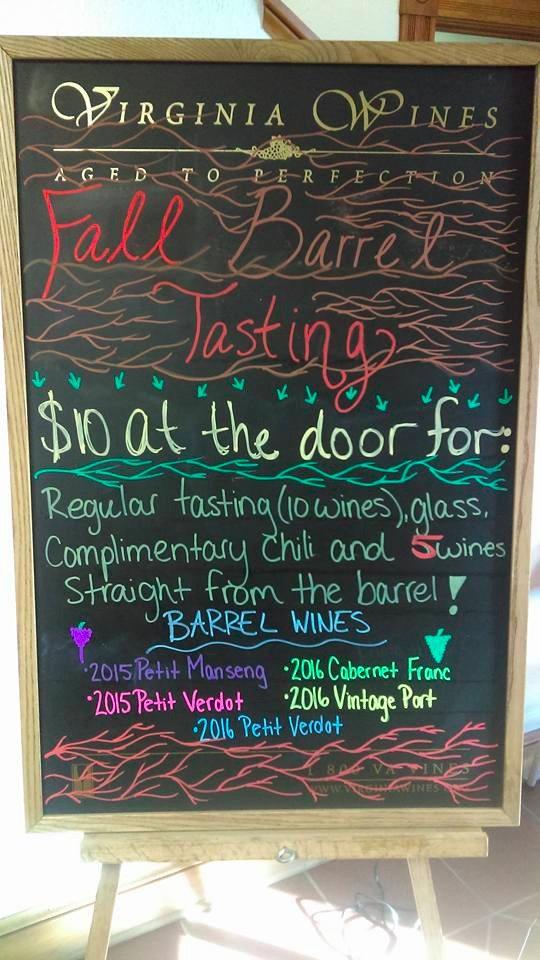 VIRGINIA WINES
AGED TO PERFECTION
Fall Barrel
Tasting
$10 at the door for:
Regular tasting (10 wines), glass,
Complimentary chili and 5 wines
Straight from the barrel!
BARREL WINES
•2015 Petit Manseng •2016 Cabernet Franc
•2015 Petit Verdot •2016 Vintage Port
•2016 Petit Verdot
1 800 VA VINES